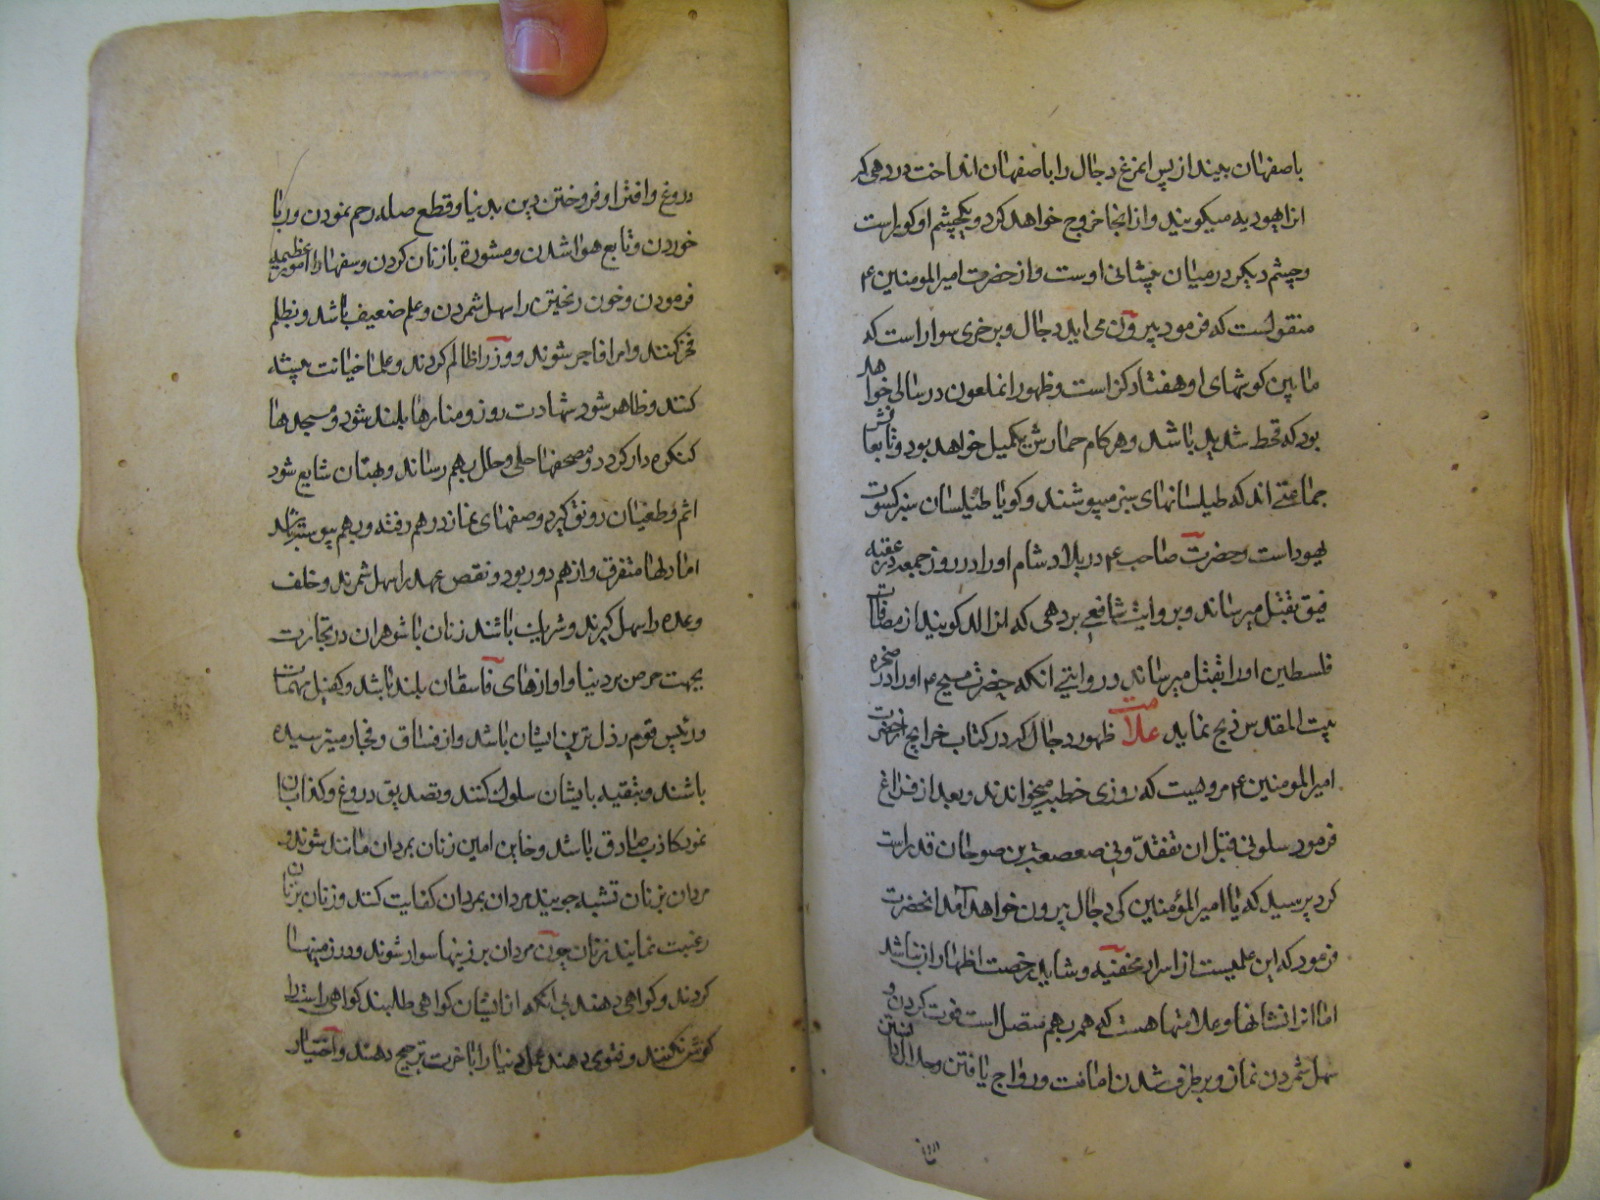 باصفهان بیند از پس انمرغ دجال را باصفهان انداخت در دهی که
انرا یهودیه میکویند و از انجا خروج خواهد کرد و یکچشم او کور است
و چشم دیکر در میان پیشانی اوست و از حضرت امیر المومنین ع
منقولست که فرمود بیرون می اید دجال و بر خری سوار است که
ما بین کوشهای او هفتاد کز است و ظهور انملعون در سالی خواهد
بود که قحط شدید باشد و هر کام حمارش یکمیل خواهد بود و تابعانش
جماعتی اند که طیلسانهای سبز میپوشند و کویا طیلسان سبز کسوت
یهود است و حضرت صاحب ع در بلاد شام او را در روز جمعه در عقبه
فیق بقتل میرساند و بروایت شافعی بر دهی که انرا لد کویند از مضافات
فلسطین او را بقتل میرساند و روایتی انکه حضرت مسیح ع او را در صخره
بیت المقدس ذبح نماید علامت ظهور دجال که در کتاب خرایج از حضرت
امیر المومنین ع مرویست که روزی خطبه میخواندند و بعد از فراغ
فرمود سلونی قبل ان تفقدونی صعصعة بن صوحان قد راست
کرد پرسید که یا امیر المؤمنین کی دجال بیرون خواهد آمد انحضرت
فرمود که این علمیست از اسرار مخفیه و شاید رخصت اظهار ان نباشد
اما انرا نشانها و علامتها هست که همه بهم متصل است فوت کردن و
سهل شمردن نماز و برطرف شدن امانت و رواج یافتن و حلال دانستن
دروغ
دروغ و افترا و فروختن دین بدنیا و قطع صله رحم نمودن و ربا
خوردن و تابع هوا شدن و مشورة با زنان کردن و سفها را امور عظیمه
فرمودن و خون ریختن را سهل شمردن و علم ضعیف باشد و بظلم
فخر کنند و امرا فاجر شوند و وزرا ظالم کردند و علما خیانت پیشه
کنند و ظاهر شود شهادت زور و منارها بلند شود و مسجدها
کنکره دار کردد و مصحفها حلی و حلل بهم رساند و بهتان شایع شود
اثم و طغیان رونق کیرد و صفهای نماز در هم رفته و بهم پیوسته باشد
اما دلها متفرق و از هم دور بود و نقص عهد را سهل شمرند و خلف
وعده را سهل کیرند و شریک باشند زنان با شوهران در تجارت
بجهت حرص بر دنیا و اوازهای فاسقان بلند باشد و کفیل مهمات
و رئیس قوم رذل ترین ایشان باشد و از فساق و فجار میترسیده
باشند و بتقیه با ایشان سلوک کنند و تصدیق دروغ و کذابان
نمود کاذب صادق باشد و خاین امین زنان بمردان مانند شوند و
مردان بزنان تشبه جویند مردان بمردان کفایت کنند و زنان بزنان
رغبت نمایند زنان چون مردان بر زینها سوار شوند و در زمینها
کردند و کواهی دهند بی انکه از ایشان کواهی طلبند کواهی راست را
کوش نکنند و فتوی دهند عمل دنیا را باخرت ترجیح دهند و اختیار